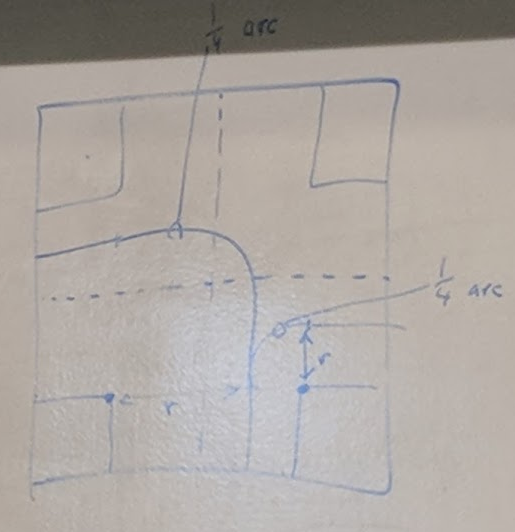 1/4 arc
1/4 arc
r
r